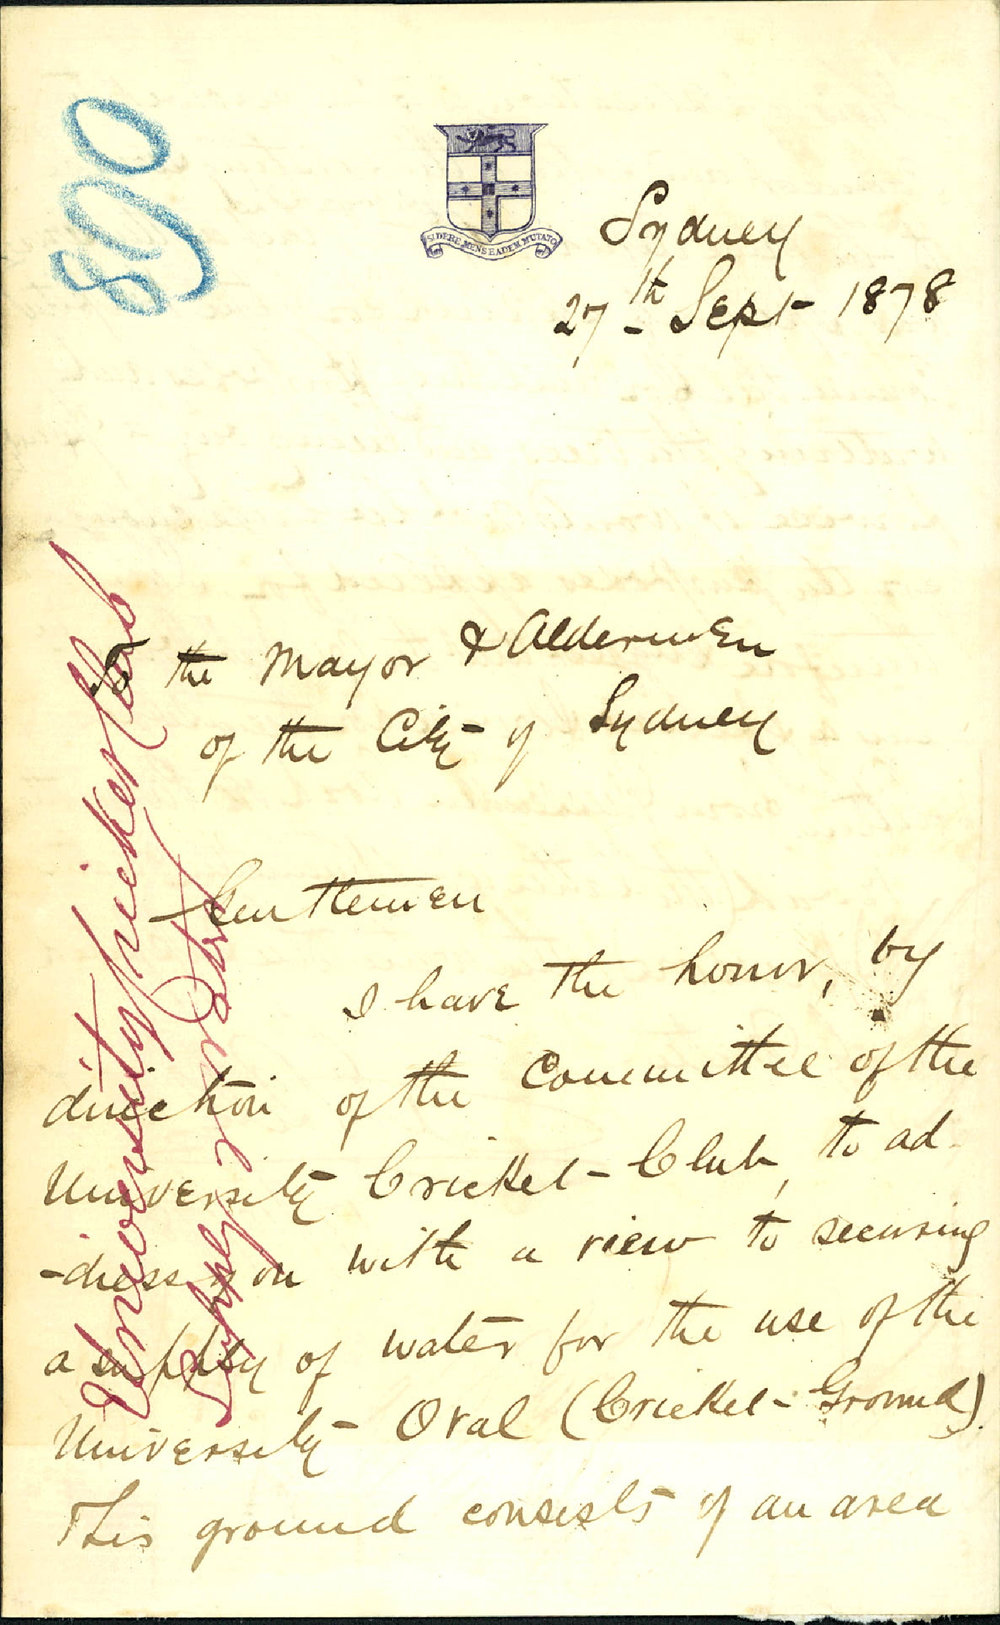 890
SIDERE MENS EADEM MUTATO
Sydney
27th Sept 1878
To the Mayor & Aldermen
of the City of Sydney
Gentlemen
I have the honor, by
direction of the Committee of the
University Cricket Club, to ad
-dress you with a view to securing
a supply of water for the use of the
University Oval (Cricket Ground).
This ground consists of an area
University Cricket Club
Supply of Water